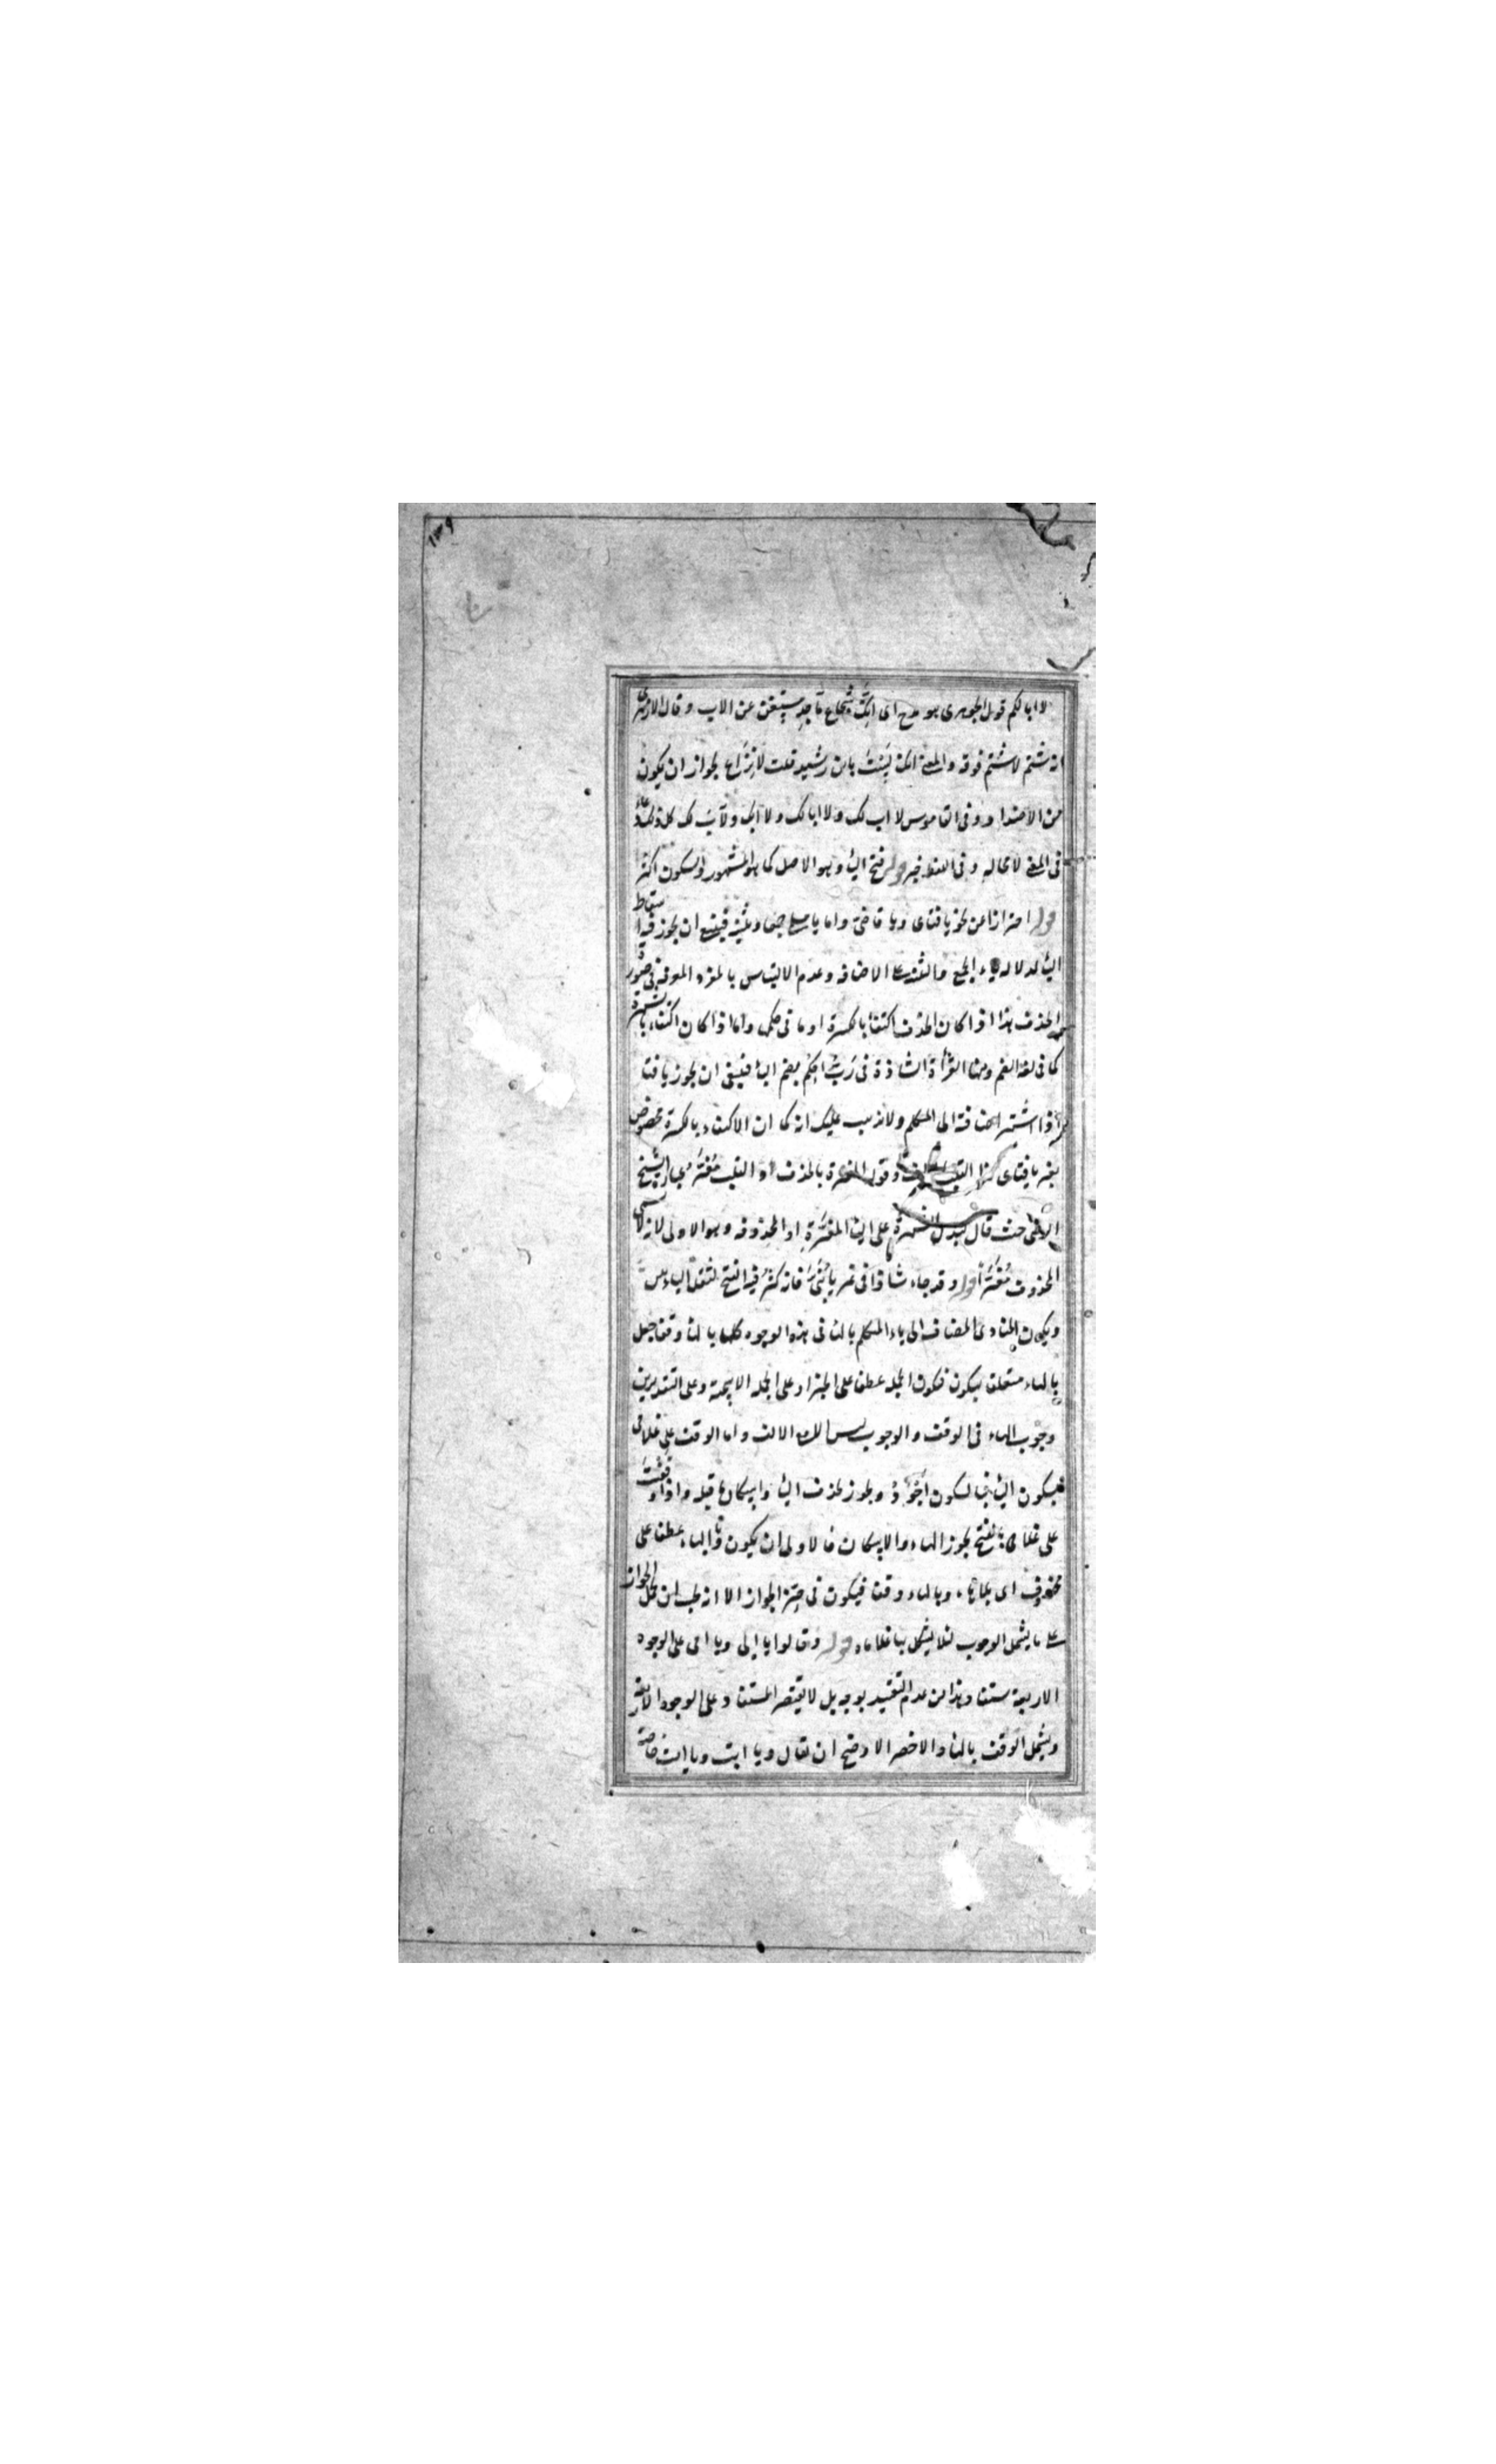 ١٣٩
لا ابا لكم قول الجوهرى هو مدح اى انك شجاع ماجد مستغن عن الاب وقال الازهرى
انه شتم لا شتم فوقه والمعنى انك لست بابن رشيد قلت لا نزاع لجواز ان يكون
من الاضداد وفى القاموس لا اب لك ولا ابا لك ولا ابك ولا بَ لك كل ذلك دعاء
فى المعنى لا محاله وفى اللفظ خبر قوله فتح الياء وهو الاصل كما هو المشهور والسكون اكثر
قوله احترازا عن نحو يا فتاى ويا قاضى واما يا صاحبى فيمتنع ان يجوز فيه اسقاط
الياء لدلالة ياء الجمع والتثنية على الاضافه وعدم الالتباس بالمفرد المعرفة فى صورة
الحذف هذا اذا كان الحذف اكتفاء بالكسرة او ما فى حكمه واما اذا كان اكتفاء بالشهرة
كما فى لغة الضم ومنها القرأة الشاذة فى رب احكم بضم الباء فينبغى ان يجوز يا فتا
اذا اشتهر اضافة الى المتكلم ولا يذهب عليك انه كما ان الاكتفاء بالكسرة مخصوص
بغير يا فتاى كذا القلب وقول بالحذف او القلب الشيخ
الرضى حيث قال ليدل الشهرة على الياء المغيرة او المحذوفه وهو الاولى لانه لا يسمى
المحذوف مُغيَّرا قوله وقد جاء شاذا فى غير يا بُنَىَّ فانه كثر فيه الفتح لثقل الياءين
ويكون المنادى المضاف الى ياء المتكلم بالهاء فى هذه الوجوه كلها بالهاء وقفا جعل
بالهاء متعلق بيكون فيكون الجمله عطفا على الخبر او على الجمله الاسمية وعلى التقديرين
وجوب الهاء فى الوقف والوجوب ليس الا فى الالف واما الوقف على غلامى
بسكون الياء فبالسكون اجود ويجوز بحذف الياء واسكان ما قبله واذا وقفت
على غلامى بالفتح يجوز الهاء والاسكان فالاولى ان يكون وبالهاء عطفا على
محذوف اى بلا هاء وبالهاء وقفا فيكون فى حيّز الجواز الا انه يجب ان يحمل الجواز
على ما يشمل الوجوب لئلا يشكل بيا غلاماه قوله وقالوا يا ابى ويا امى على الوجوه
الاربعة وقفا وهذا من عدم التقييد بوجه بل لا يقتصر المستفاد على الوجوه الاربعة
ويشمل الوقف بالهاء والاخصر الاوضح ان يقال ويا ابت ويا امت خاصة